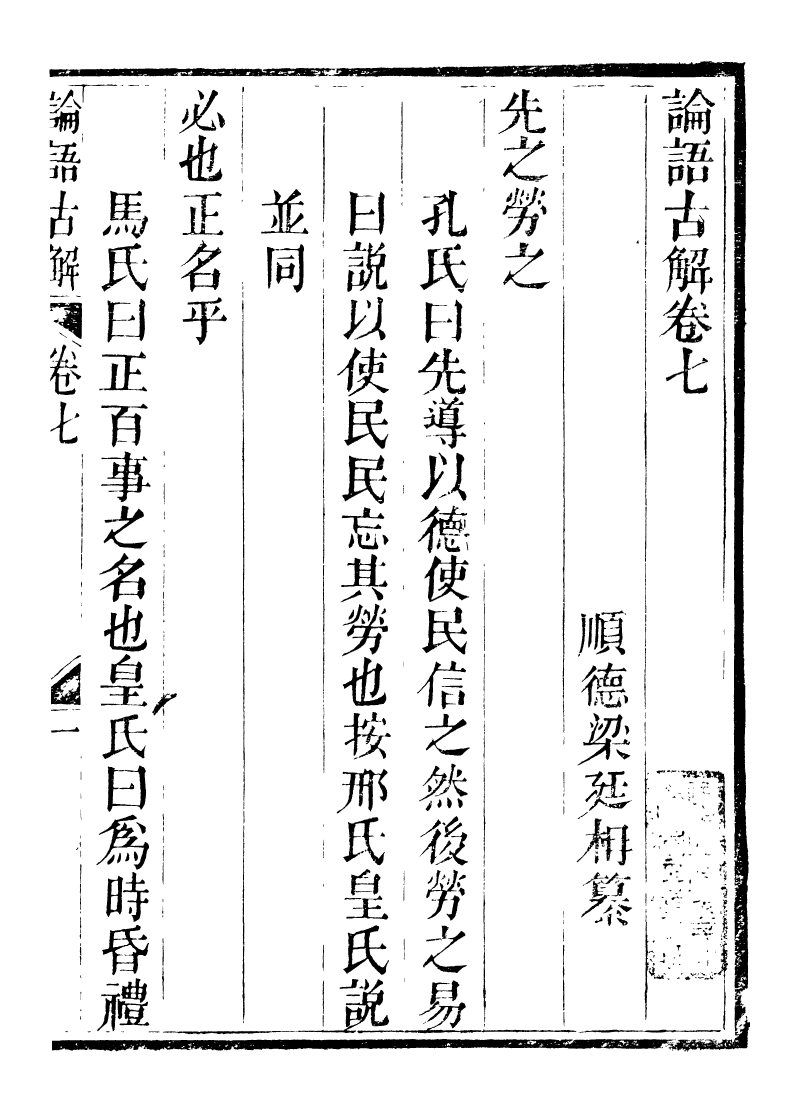 論語古解卷七
順德梁廷柟纂
先之勞之
孔氏曰先導以德使民信之然後勞之易
曰說以使民民忘其勞也按邢氏皇氏說
並同
必也正名乎
馬氏曰正百事之名也皇氏曰爲時昏禮
論語古解 卷七 一